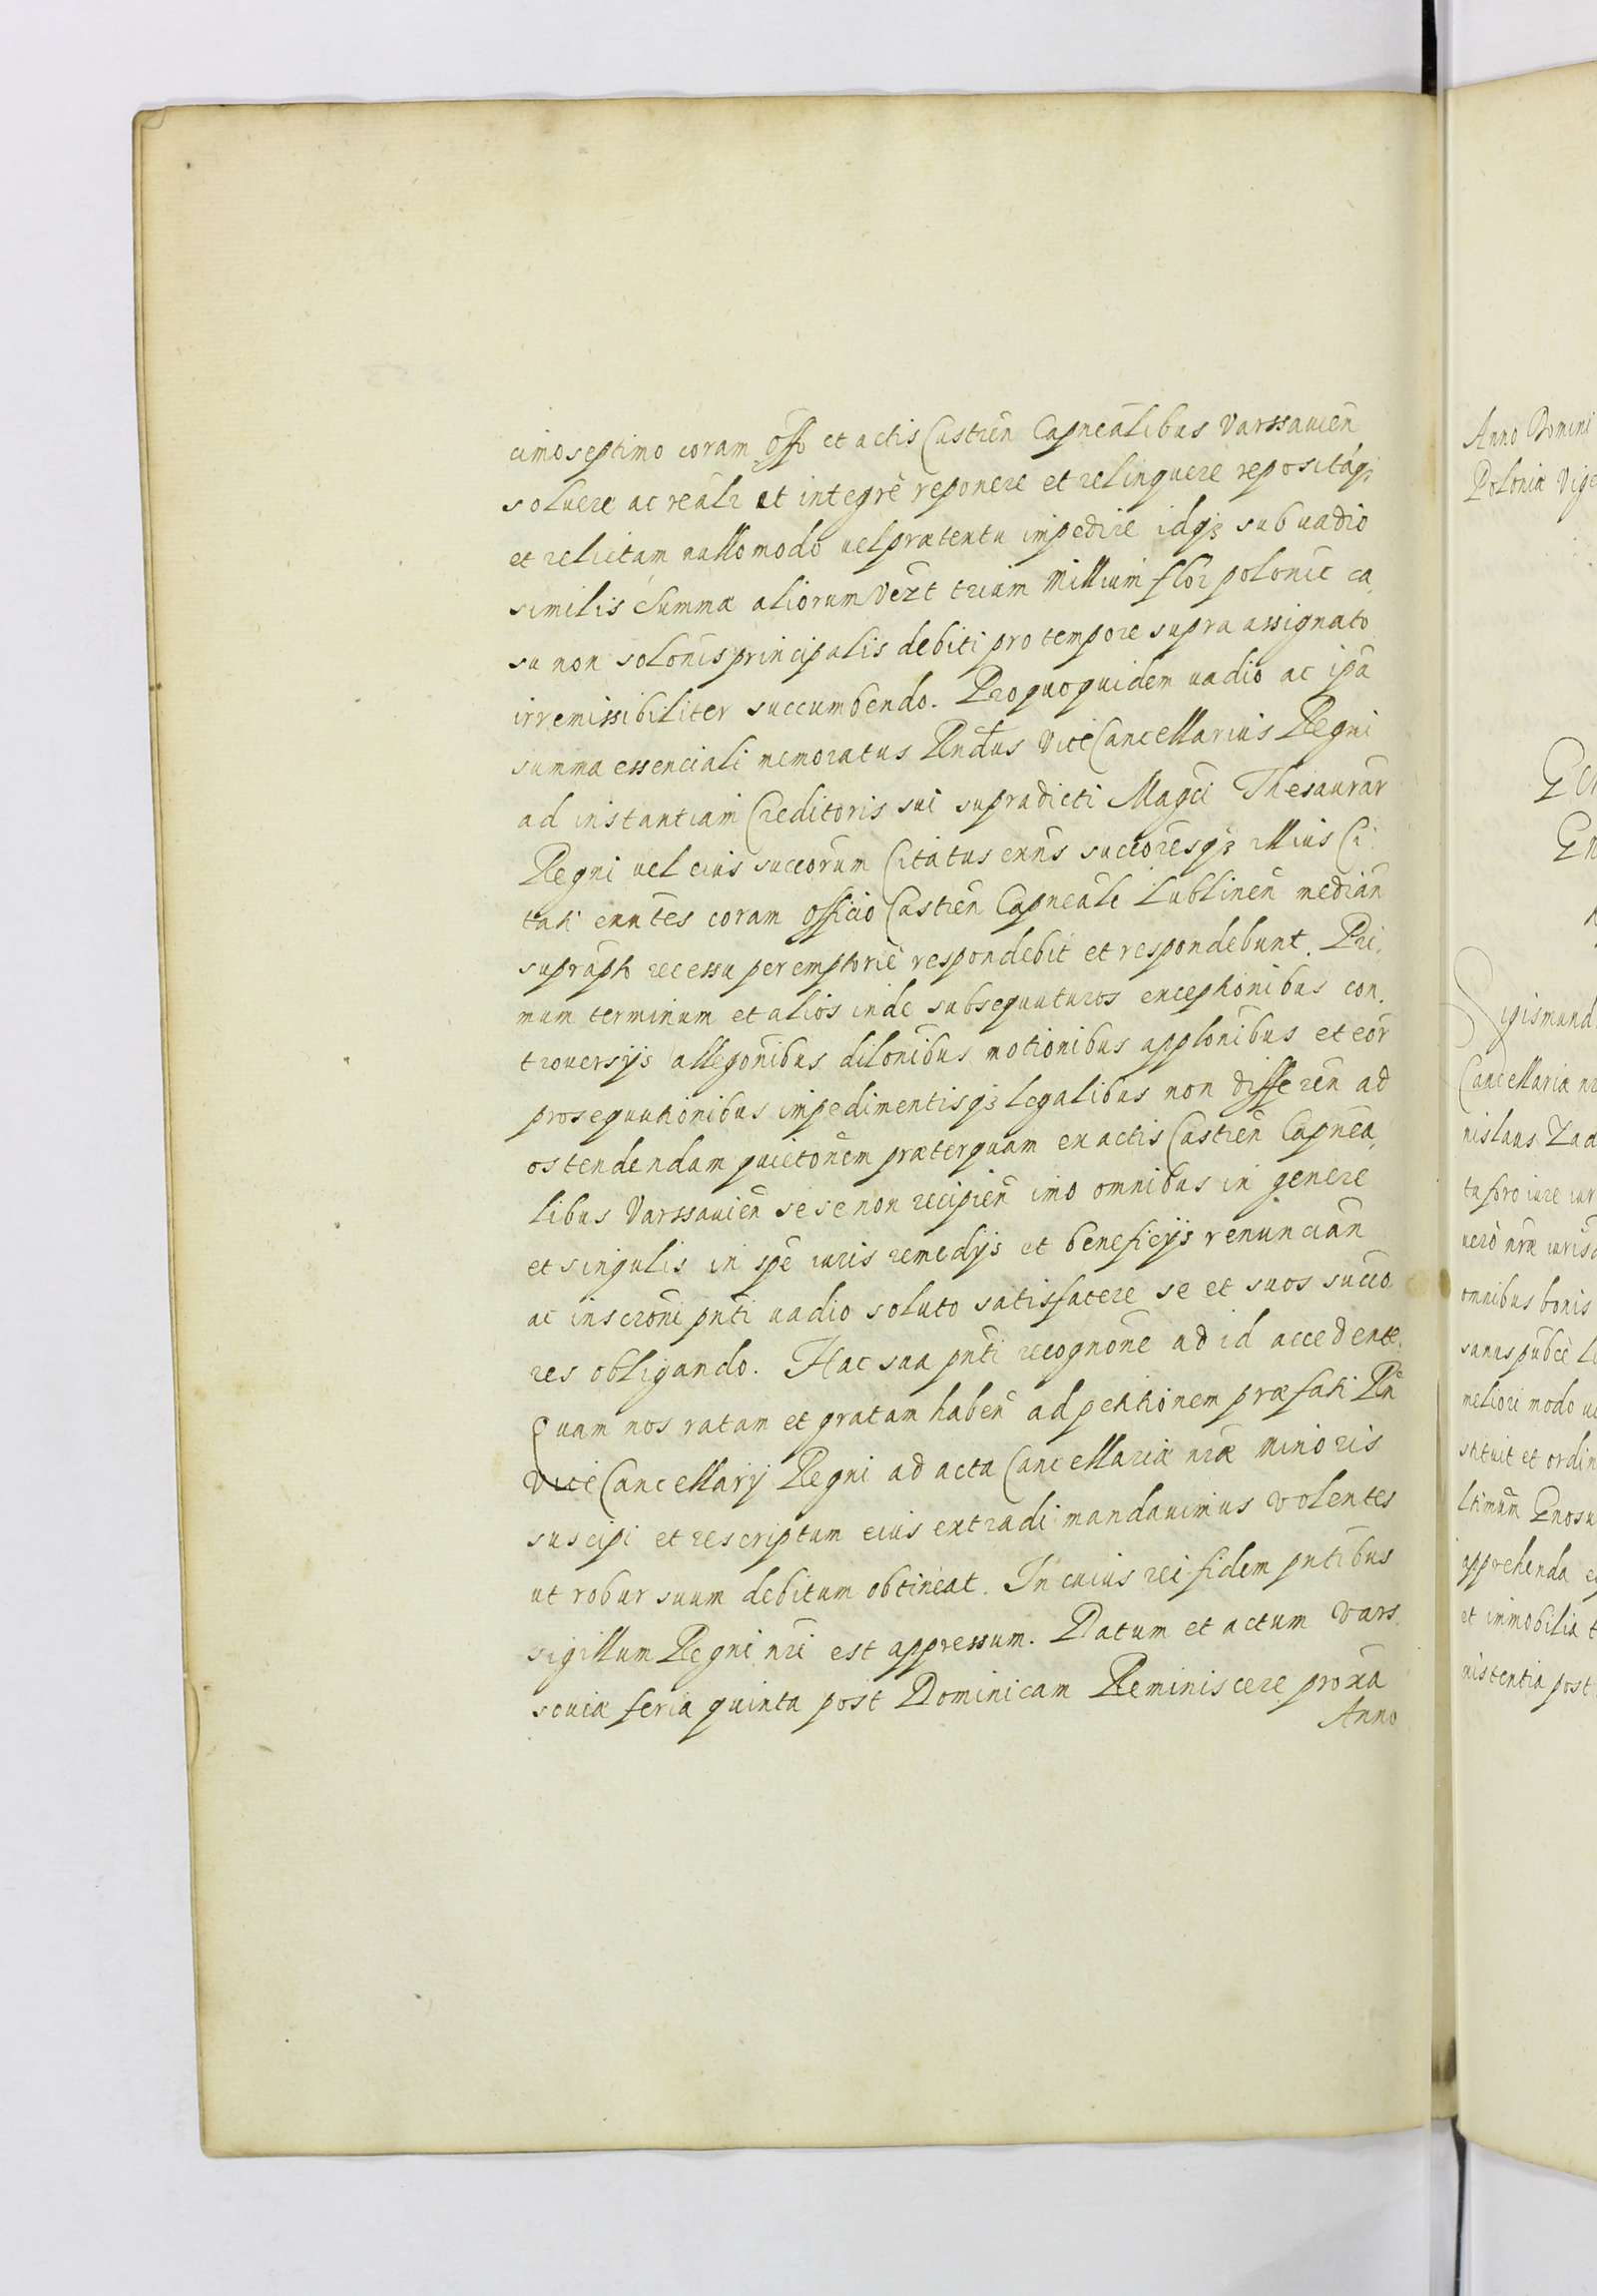 cimoseptimo coram Offo et actis Castren Capnealibus Varssavien
soluere ac realr et integrè reponere et relinquere repositāqȝ
et relictam nullo modo vel prætentu impedire idqȝ sub vadio
similis Summæ aliorum Vezt trium Millium flor polonic ca,
su non solonis principalis debiti pro tempore supra assignato
irremissibiliter succumbendo. Pro quo quidem vadio ac ipa
summa essenciali memoratus Rndus Vice Cancellarius Regni
ad instantiam Creditoris sui supradicti Magci Thesaurar
Regni vel eius succorum Citatus exns succoresqȝ illius Ci
tati exntes coram Officio Castren Capneali Lublinen median
suprapto recessu peremptoriè respondebit et respondebunt. Pri,
mum terminum et alios inde subsequuturos exceptionibus con,
trouersijs allegonibus dilonibus motionibus applonibus et eor
prosequutionibus impedimentisqȝ legalibus non differen ad
ostendendam quietonem præterquam ex actis Castren Capnea,
libus Varssavien sese non recipien imo omnibus in genere
et singulis in spe iuris remedijs et beneficijs renuncian
ac inscroni pnti vadio soluto satisfacere se et suos succo
res obligando. Hac sua pnti recognone ad id accedente.
Quam nos ratam et gratam haben ad petitionem præfati Rn
Vice Cancellarij Regni ad acta Cancellariæ nræ minoris
suscipi et rescriptum eius extradi mandauimus volentes
ut robur suum debitum obtineat. In cuius rei fidem pntibus
sigillum Regni nri est appressum. Datum et actum Vars
souiæ feria quinta post Dominicam Reminiscere proxa
Anno
Anno Domini
Poloniæ Vige
Sigismund
Cancellariæ nr
nislaus Zad
ta foro iure iur
uerò nræ iurisd
omnibus bonis
sanus pubcè
meliori modo
stituit et ordin
apprehenda
et immobilia
post